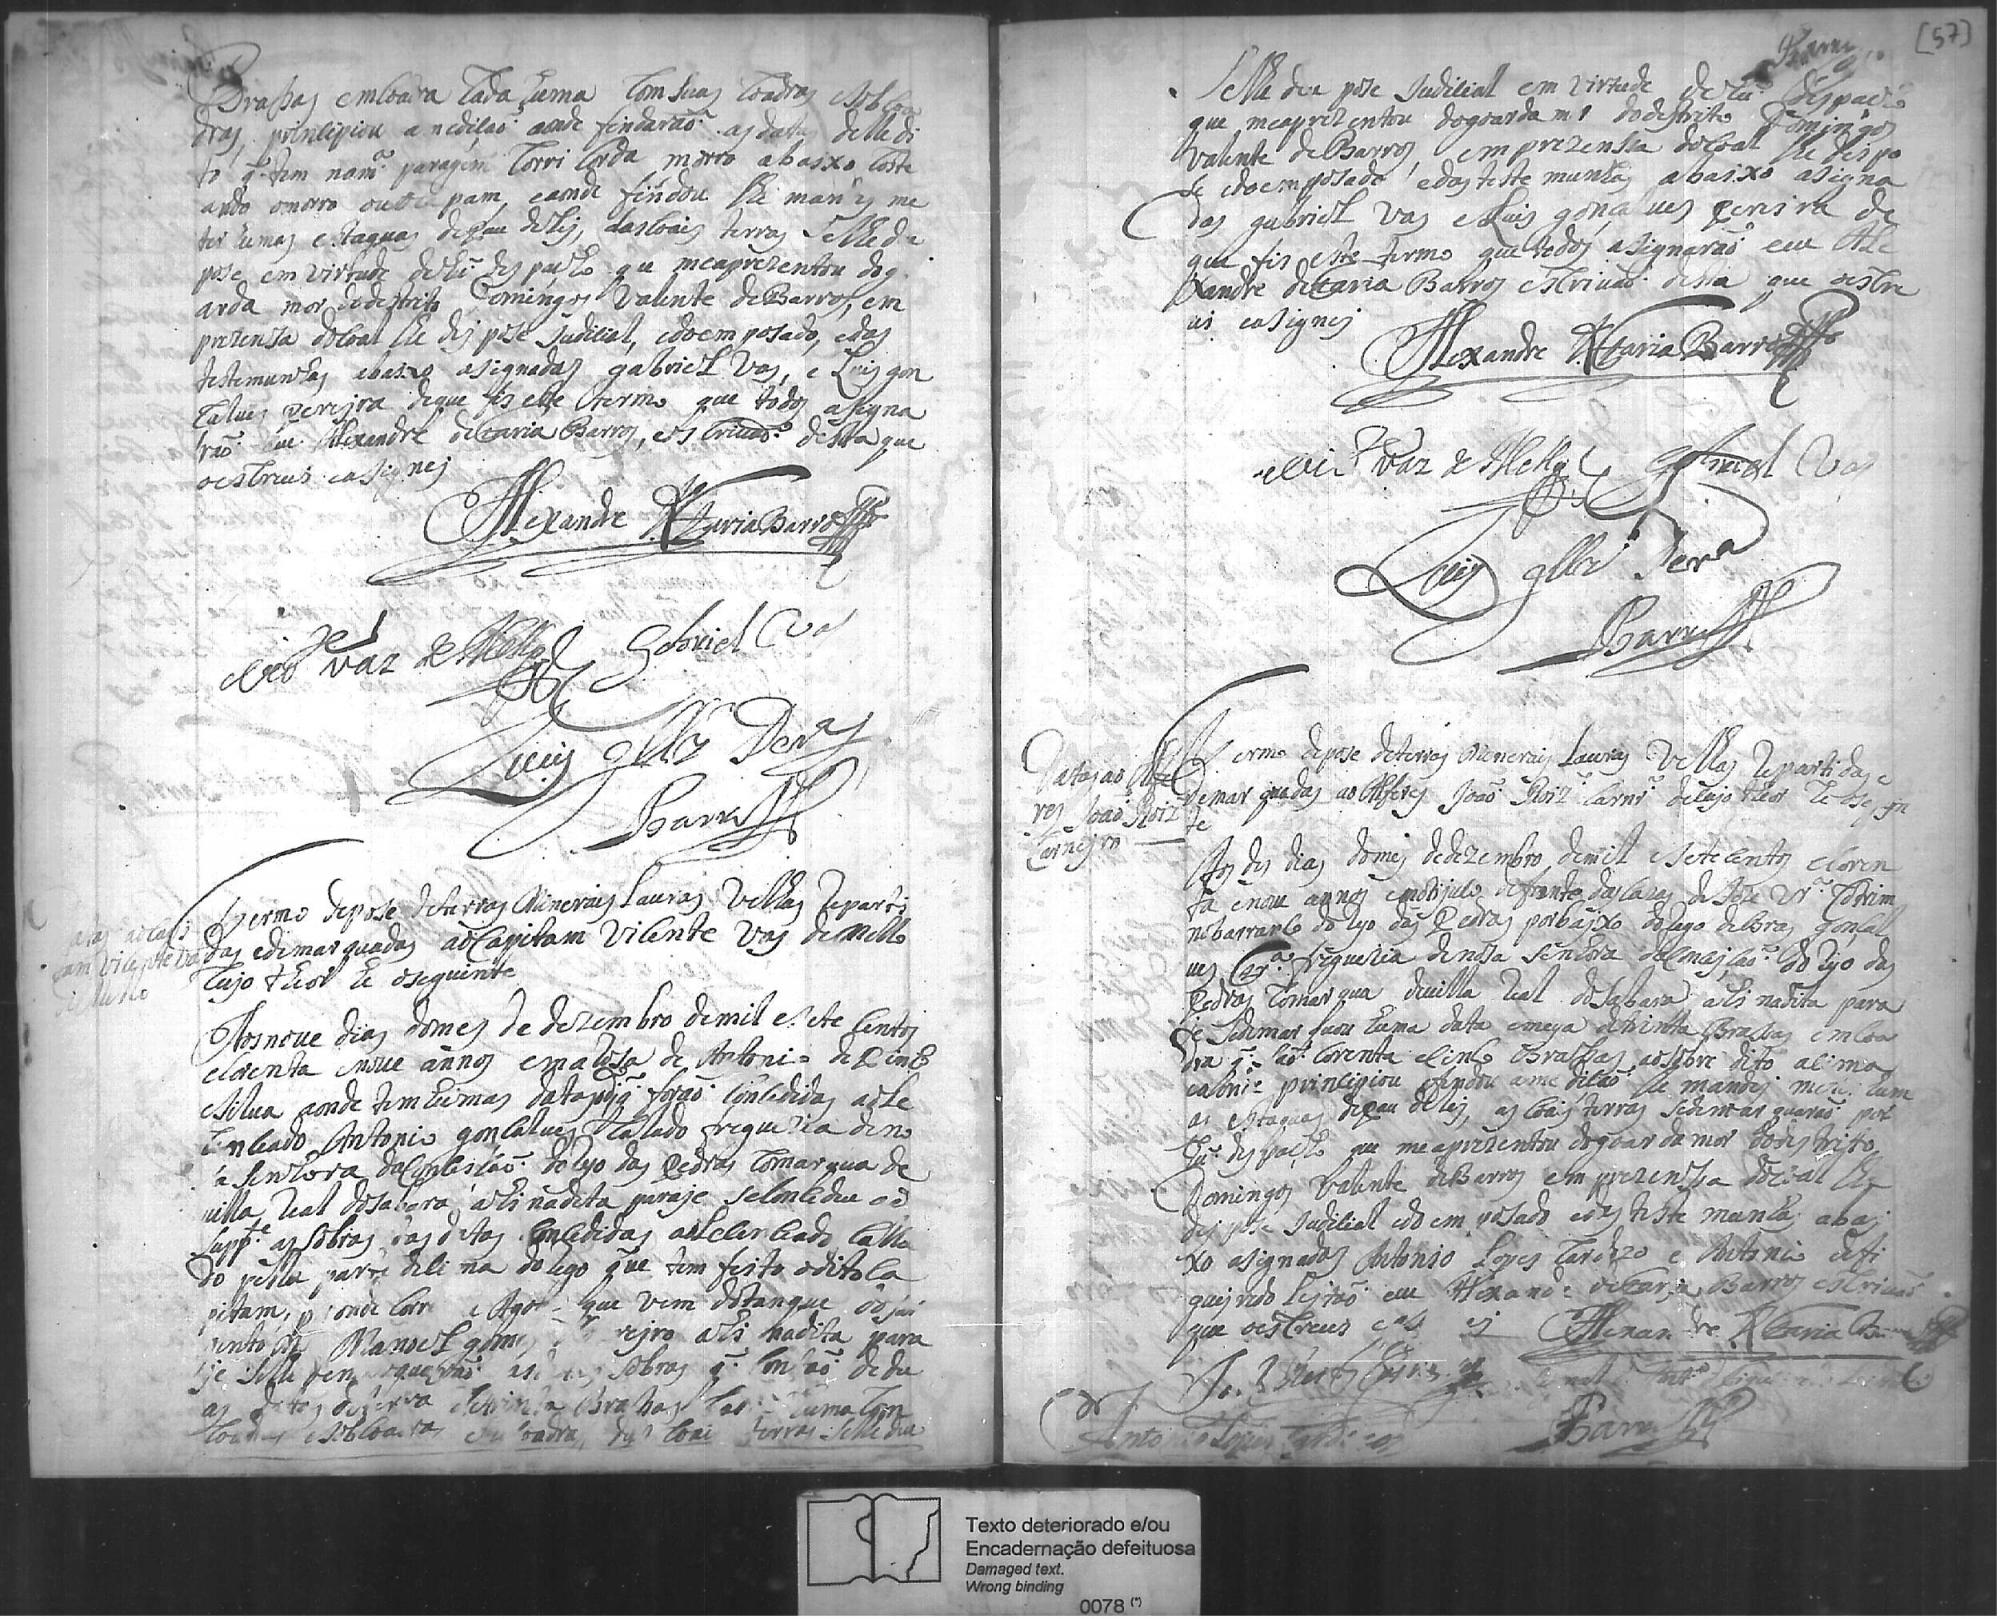 Brassas em coadra Cada huma Com suas Coadras e sobcoa
dras, prinsipiou a medisaõ aonde findaraõ as datas delle di
to q tem nome paragem Corri Corda morro abaxo Coste
ando o morro pam, e aonde findou lhe mandej me
ter humas estaquas de pau de lej, das coais terras Selle deu
pose em virtude de hũ despacho que me aprezentou do g
arda mor do destrito Domingos Valente de Barros, em
prezensa do coal lhe dej pose Judisial, e do em posado, e das
testemunhas abaxo asignadas gabriel Vas, e Luis gon
Calves pereira de que fis este termo que todos asigna
raõ eu Alexandre de Faria Barros, escrivaõ desta que
o escrevi e asignej
Alexandre de Faria Barros
Vaz de Mello
Gabriel Vas
Luis glz Pera
Barros
Termo de pose de terras Minerais Lauras Velhas Reparti
das e demarquadas ao Capitam Vicente Vas de Mello
Cujo theor he o seguinte
Datas ao Capi
tam Vicente Vas
de Mello
Aos nove dias do mes de dezembro de mil e sete Centos
e Corenta e nove annos em a Rosa de Antonio de Pinto
e Silva aonde tem humas datas q foraõ Consedidas ao Le
Cenceado Antonio gonçalues Calado freguezia de no
sa Senhora da Conseisaõ do Rio das Pedras Comarqua de
villa Real do Sabara, ahi na dita paraje se Consedeu ao
Supp.te as sobras das ditas Consedidas ao Lecenceado Calla
do pella parte de sima do Rego que tem feito o dito Ca
pitam, por onde Corre e Agoa que vem do tanque do Jui
Manoel gomes ahi na dita para
je selhe demarquaraõ as ditas sobras q Constaõ de du
as datas de terra de trinta Brassas Cada huma Com
Coadras e sobcoadras em coadra, das coais terras Selle deu
[57]
Barros
Selle deu pose Judisial em virtude de hũ despacho
que me aprezentou do goarda mr do destrito Domingos
Valente de Barros, em prezensa do coal lhe dej po
se e do em posado, e das testemunhas abaixo asigna
das gabriel Vas e Luis gonçalues pereira de
que fis este termo que todos asignaraõ eu Ale
xandre de Faria Barros escrivaõ desta que o escre
vi e asignej
Alexandre de Faria Barros
Vaz de Mello
Gabriel Vas
Luis glz Pera
Barros
Datas ao Alfe
res Joaõ Roiz
Carnejro
Termo de pose de terras Minerais Lauras Velhas Repartidas e
demarquadas ao Alferes Joaõ Roiz Carnr.o de Cujo theor he o seguin
te
Aos des dias do mes de dezembro de mil e sete Centos e Coren
ta e nove annos defronte das Cazas de Joze
no barranco do Rio das Pedras por baixo do Rego de Bras gonçal
ves freguezia de nosa Senhora da Conseisaõ do Rio das
Pedras Comarqua de villa Real do Sabara, ahi na dita para
je se demarquou huma data e meya de trinta Brassas em coa
dra q saõ Corenta e sinco Brassas ao sobre dito asima
prinsipiou e findou a medisaõ lhe mandej meter hum
as estaquas de pau de lej, as coais terras se demarquaraõ por
hũ despacho que me aprezentou do goarda mor do destrito
Domingos Valente de Barros em prezensa do coal lhe
dej pose Judisial e do em posado e das testemunhas abai
xo asignadas Antonio Lopes Cardozo e Antonio de Fi
gueiredo Leitaõ eu Alexandre de Faria Barros escrivaõ
que o escrevi e asignej Alexandre de Faria Barros
Antonio Lopes Cardozo
Barros
Texto deteriorado e/ou
Encadernação defeituosa
Damaged text.
Wrong binding
0078 (*)